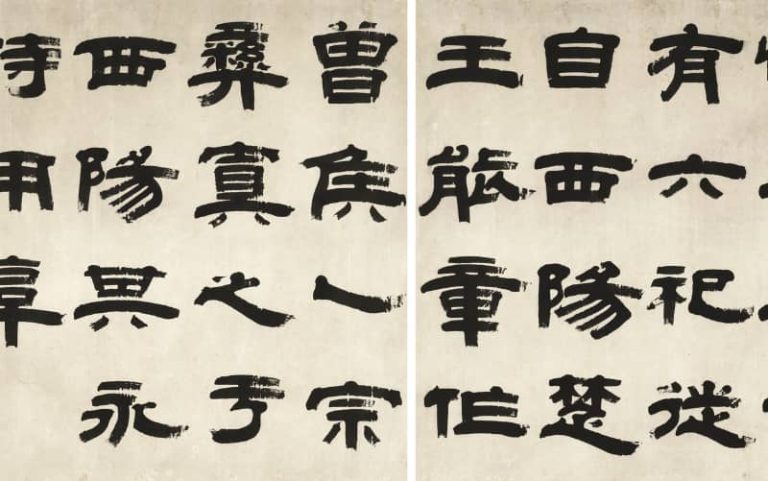 有六祀徙
自西陽楚
王能章作
曾侯乙宗
彝真之于
西陽其永
用